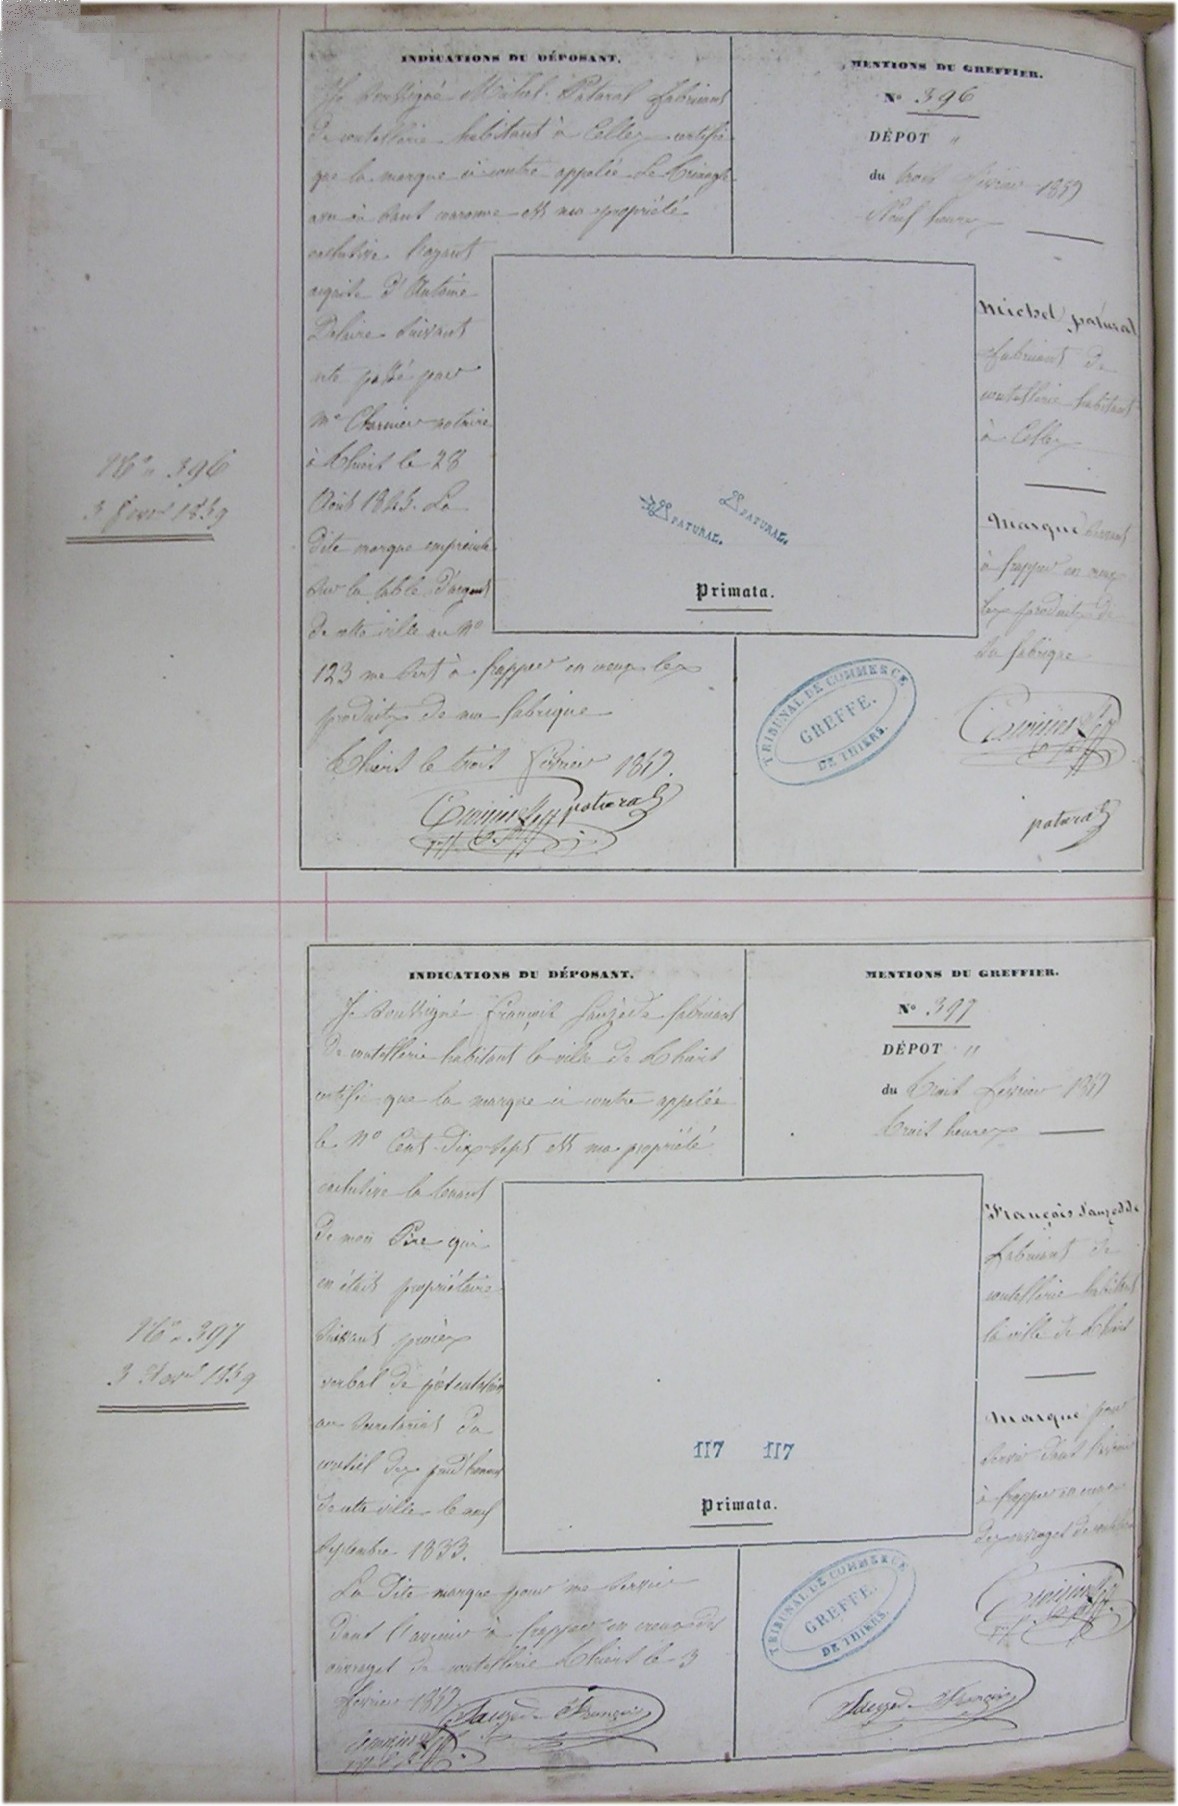 INDICATIONS DU DÉPOSANT.
Je soussigné Michel Patural fabricant
de coutellerie habitant à Celles certifie
que la marque ci contre appelée Le triangle
en haut couronne est ma propriété
exclusive l'ayant
acquise d'Antoine
Delaire suivant
acte passé par
Me Charrier notaire
à Thiers le 28
Août 1843. La
dite marque empreinte
sur la table d'argent
de cette ville au No
123 me sert à frapper en creux les
produits de ma fabrique
Thiers le trois février 1859.
patural
MENTIONS DU GREFFIER.
No 396
DÉPOT "
du trois février 1859
Neuf heures
Michel patural
fabricant de
coutellerie habitant
à Celles
Marque servant
à frapper en creux
les produits de
sa fabrique
patural
No 396
3 fevr 1859
PATURAL.
PATURAL.
Primata.
TRIBUNAL DE COMMERCE
GREFFE.
DE THIERS.
INDICATIONS DU DÉPOSANT.
Je soussigné François Sauzède fabricant
de coutellerie habitant la ville de Thiers
certifie que la marque ci contre appelée
le No Cent-Dix-sept est ma propriété
exclusive la tenant
de mon Père qui
en était propriétaire
suivant procès
verbal de présentation
au secrétariat du
conseil des prud'hommes
de cette ville le neuf
septembre 1833.
La dite marque pour me servir
dans l'avenir à frapper en creux des
ouvrages de coutellerie Thiers le 3
février 1859
Sauzede François
MENTIONS DU GREFFIER.
No 397
DÉPOT "
du trois février 1859
trois heures
François Sauzedde
fabricant de
coutellerie habitant
la ville de Thiers
Marque pour
servir dans l'avenir
à frapper en creux
des ouvrages de coutellerie
Sauzede François
No 397
3 fevr 1859
117 117
Primata.
TRIBUNAL DE COMMERCE
GREFFE.
DE THIERS.